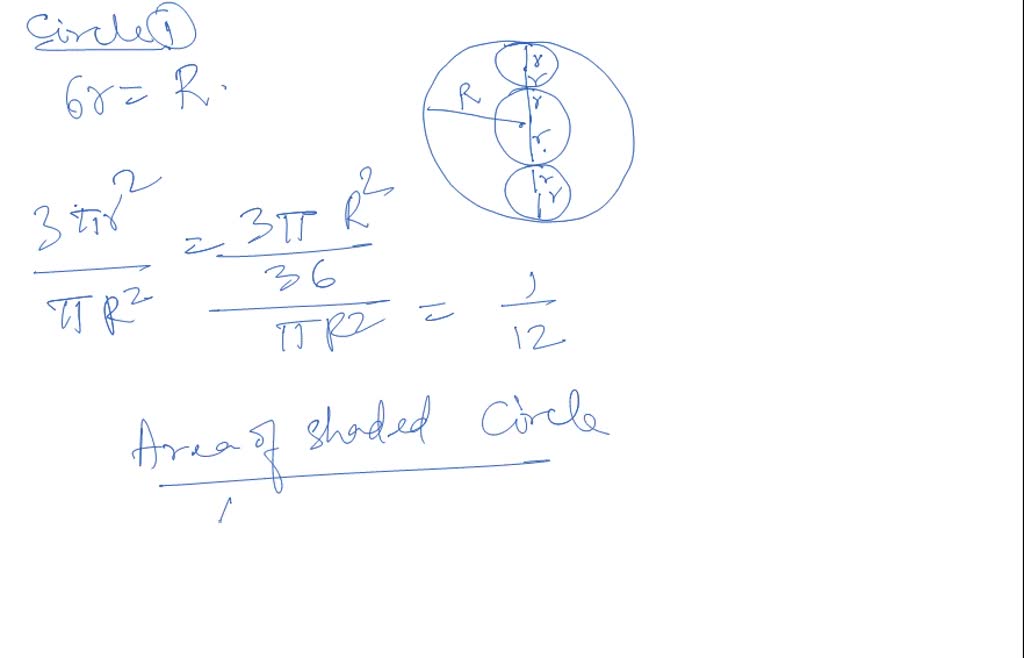 Circle ①
6r = R.
R r r r r. r r
3πr² / πR² = 3πR² / 36 / πR² = 1 / 12
Area of shaded Circle